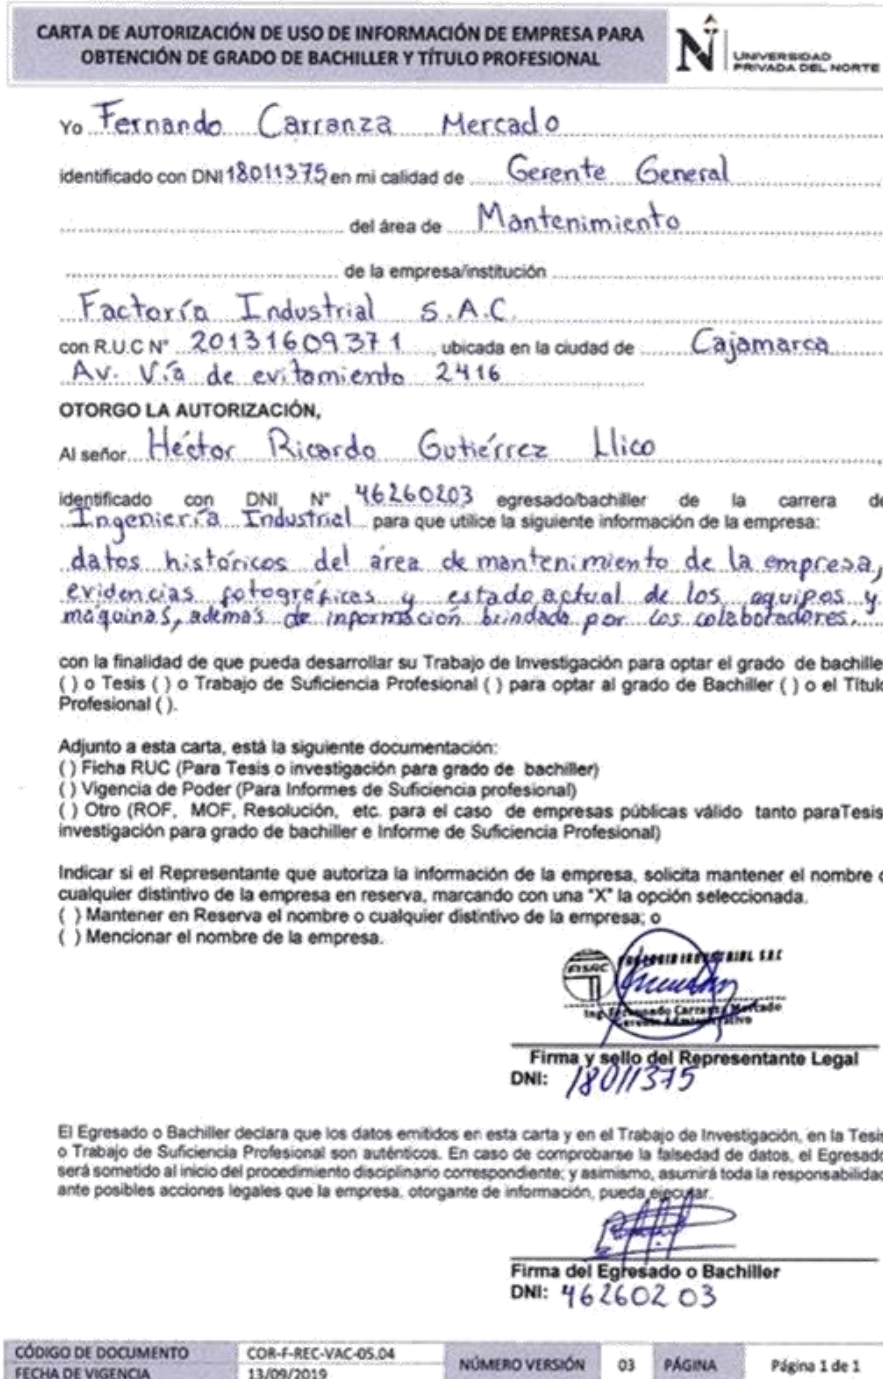 CARTA DE AUTORIZACIÓN DE USO DE INFORMACIÓN DE EMPRESA PARA
OBTENCIÓN DE GRADO DE BACHILLER Y TÍTULO PROFESIONAL
N
UNIVERSIDAD
PRIVADA DEL NORTE
Yo Fernando Carranza Mercado
identificado con DNI 18011375 en mi calidad de Gerente General
del área de Mantenimiento
de la empresa/institución
Factoría Industrial S.A.C.
con R.U.C N° 20131609371, ubicada en la ciudad de Cajamarca
Av. Vía de evitamiento 2416
OTORGO LA AUTORIZACIÓN,
Al señor Héctor Ricardo Gutiérrez Llico
identificado con DNI N° 46260203 egresado/bachiller de la carrera de
Ingeniería Industrial para que utilice la siguiente información de la empresa:
datos históricos del área de mantenimiento de la empresa,
evidencias fotográficas y estado actual de los equipos y
máquinas, además de información brindada por los colaboradores.
con la finalidad de que pueda desarrollar su Trabajo de Investigación para optar el grado de bachiller
( ) o Tesis ( ) o Trabajo de Suficiencia Profesional ( ) para optar al grado de Bachiller ( ) o el Título
Profesional ( ).
Adjunto a esta carta, está la siguiente documentación:
( ) Ficha RUC (Para Tesis o investigación para grado de bachiller)
( ) Vigencia de Poder (Para Informes de Suficiencia profesional)
( ) Otro (ROF, MOF, Resolución, etc. para el caso de empresas públicas válido tanto paraTesis
investigación para grado de bachiller e Informe de Suficiencia Profesional)
Indicar si el Representante que autoriza la información de la empresa, solicita mantener el nombre o
cualquier distintivo de la empresa en reserva, marcando con una "X" la opción seleccionada.
( ) Mantener en Reserva el nombre o cualquier distintivo de la empresa; o
( ) Mencionar el nombre de la empresa.
FISAC
FACTORIA INDUSTRIAL S.A.C
Ing. Fernando Carranza Mercado
Gerente Administrativo
Firma y sello del Representante Legal
DNI: 18011375
El Egresado o Bachiller declara que los datos emitidos en esta carta y en el Trabajo de Investigación, en la Tesis
o Trabajo de Suficiencia Profesional son auténticos. En caso de comprobarse la falsedad de datos, el Egresado
será sometido al inicio del procedimiento disciplinario correspondiente; y asimismo, asumirá toda la responsabilidad
ante posibles acciones legales que la empresa, otorgante de información, pueda ejecutar.
Firma del Egresado o Bachiller
DNI: 46260203
CÓDIGO DE DOCUMENTO COR-F-REC-VAC-05.04 NÚMERO VERSIÓN 03 PÁGINA Página 1 de 1
FECHA DE VIGENCIA 13/09/2019